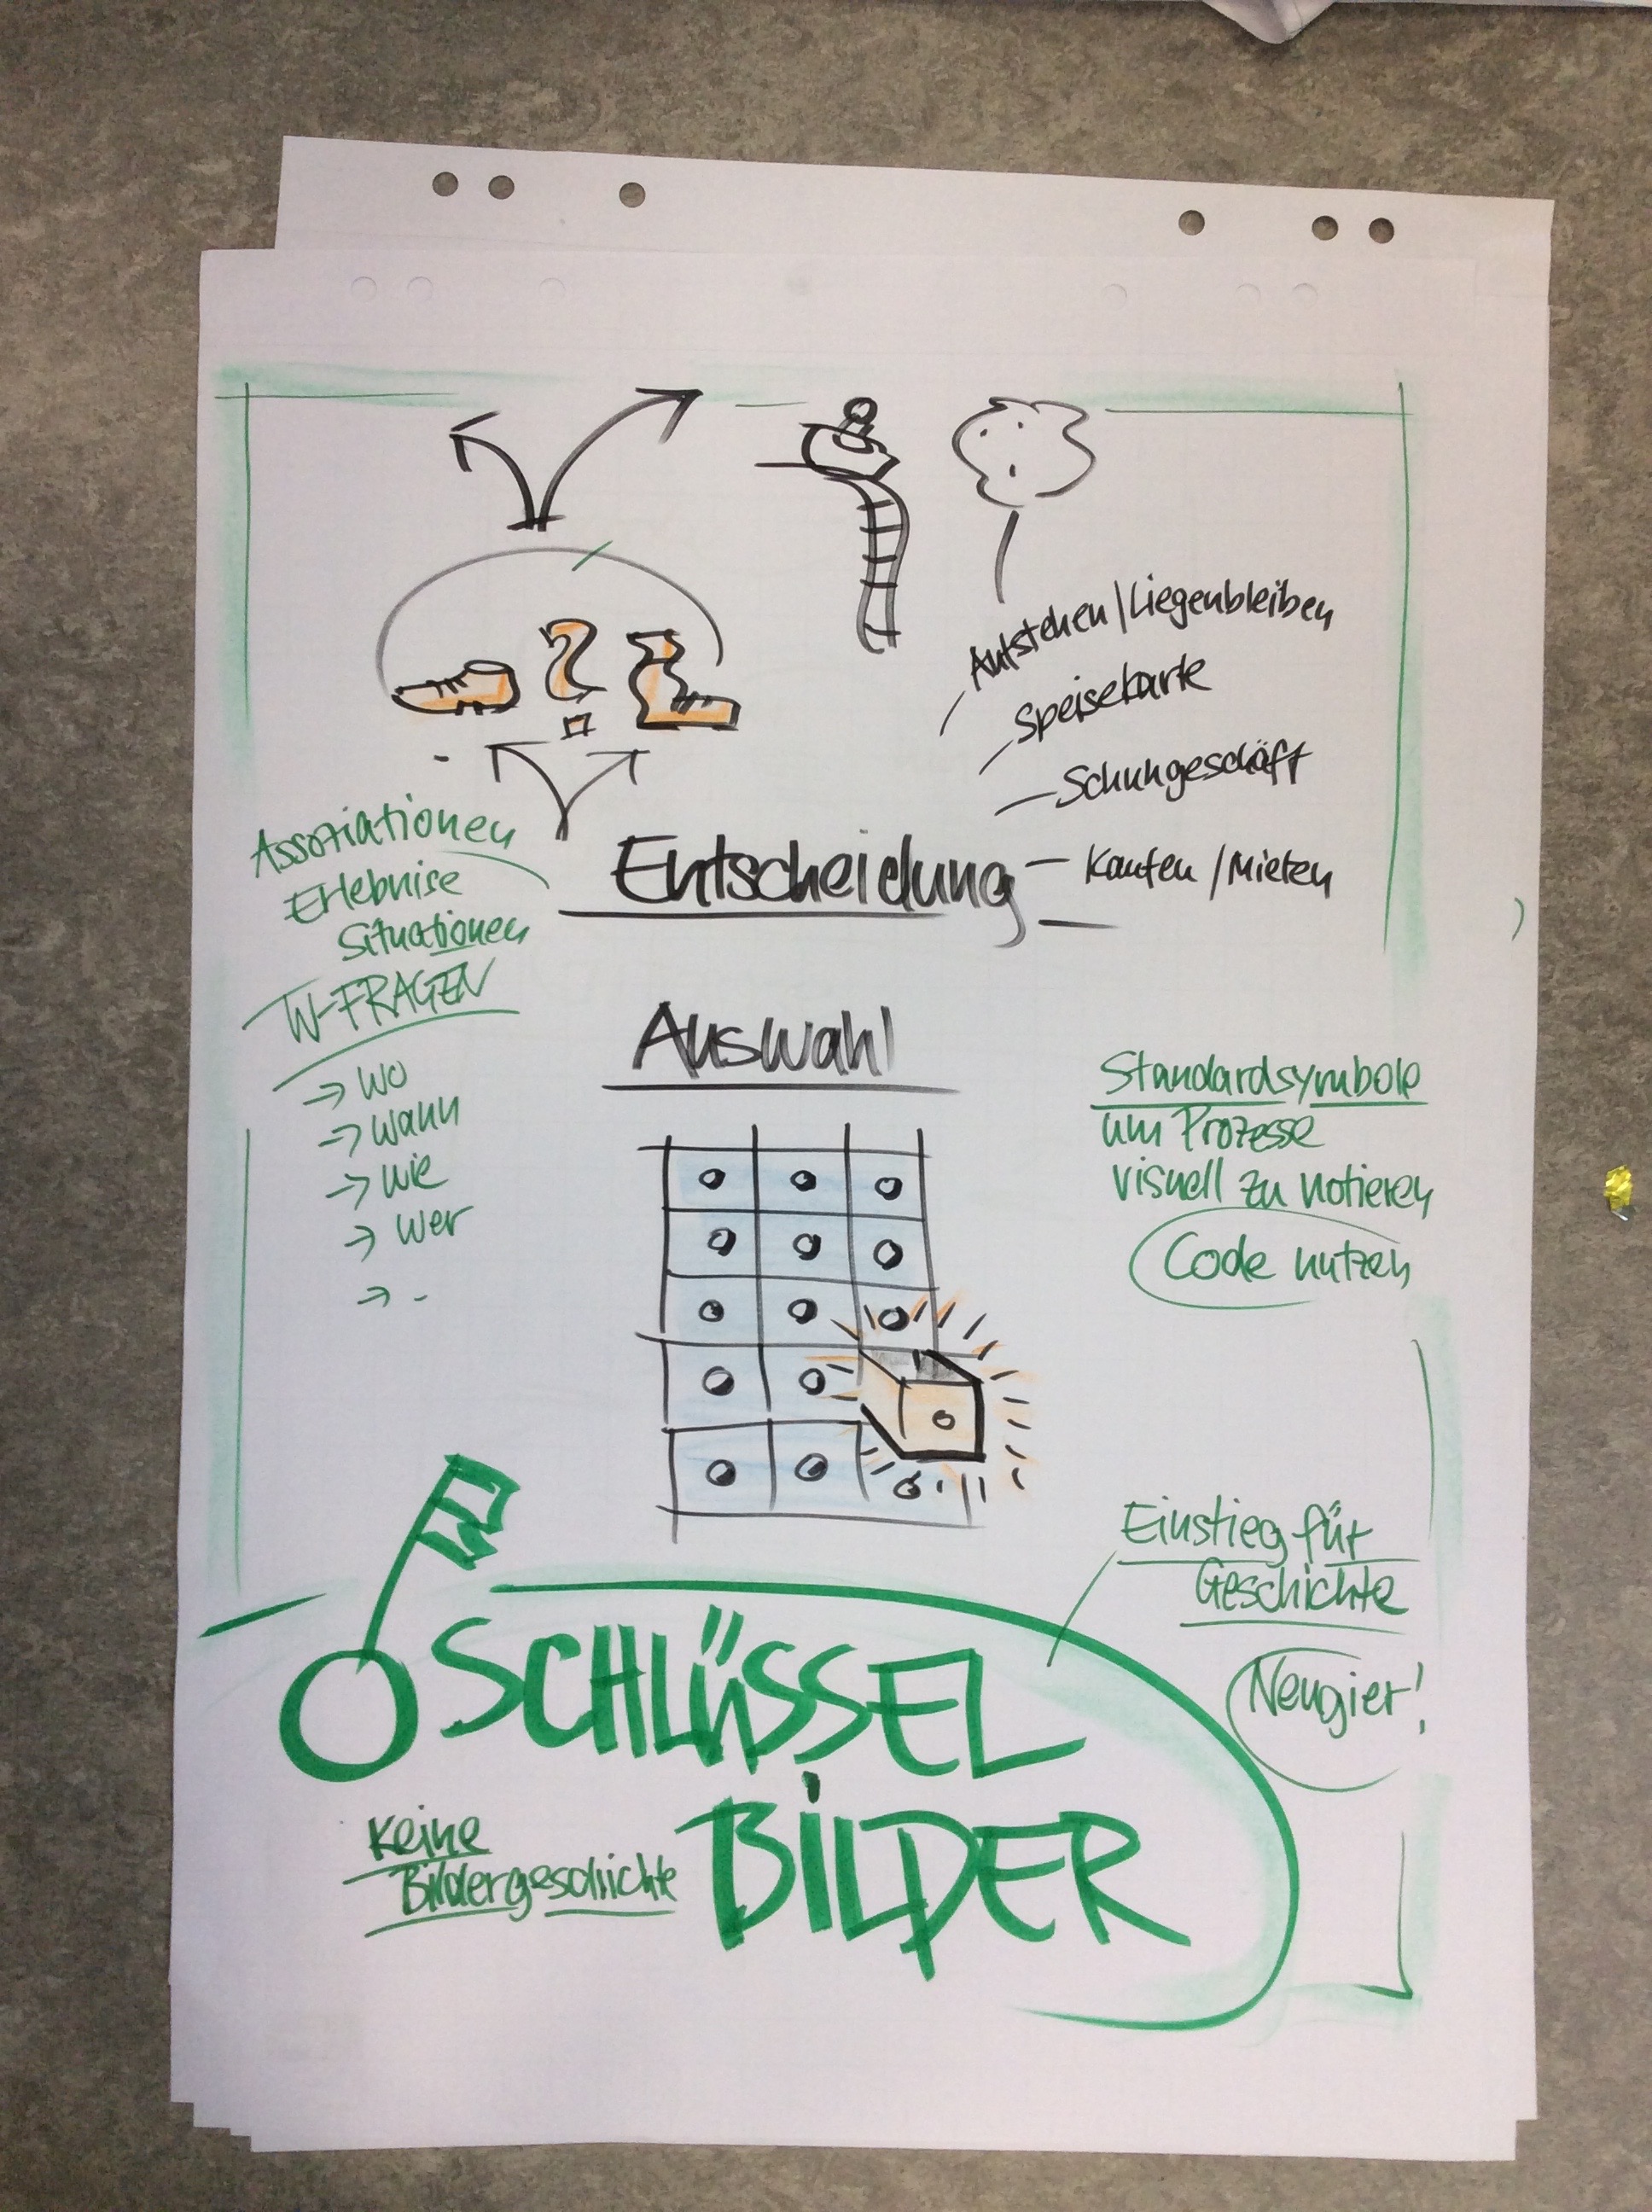 Aufstehen / Liegenbleiben
Speisekarte
Schuhgeschäft
Entscheidung – Kaufen / Mieten
Assoziationen
Erlebnise
Situationen
W-FRAGEN
→ Wo
→ Wann
→ Wie
→ Wer
→ -
Auswahl
Standardsymbole
um Prozesse
visuell zu notieren
Code nutzen
Einstieg für
Geschichte
Neugier!
SCHLÜSSEL
BILDER
Keine
Bildergeschichte